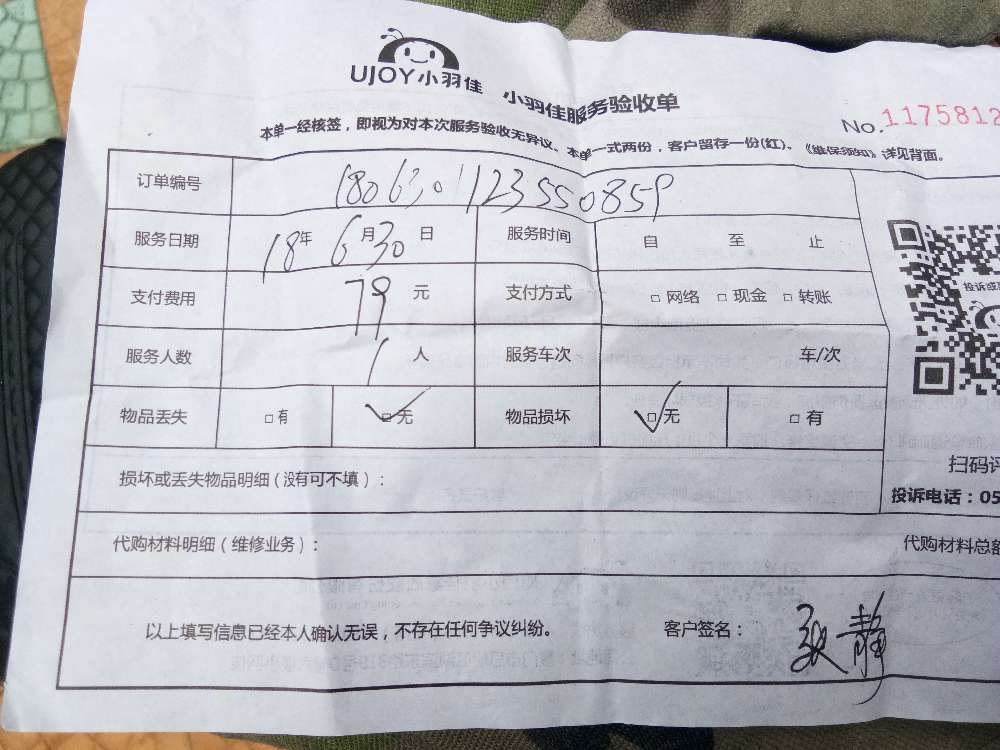 UJOY小羽佳 小羽佳服务验收单
No.1175812
本单一经核签，即视为对本次服务验收无异议、本单一式两份，客户留存一份(红)。《维保须知》详见背面。
订单编号 1806301123550859
服务日期 18年 6月30日 服务时间 自 至 止
支付费用 79元 支付方式 □网络 □现金 □转账
服务人数 1人 服务车次 车/次
物品丢失 □有 ☑无 物品损坏 ☑无 □有
损坏或丢失物品明细（没有可不填）：
代购材料明细（维修业务）：
以上填写信息已经本人确认无误，不存在任何争议纠纷。 客户签名： 静
投诉或
扫码评
投诉电话：05
代购材料总额